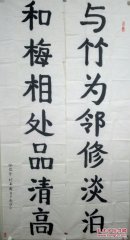 与竹为邻修淡泊
和梅相处品清高